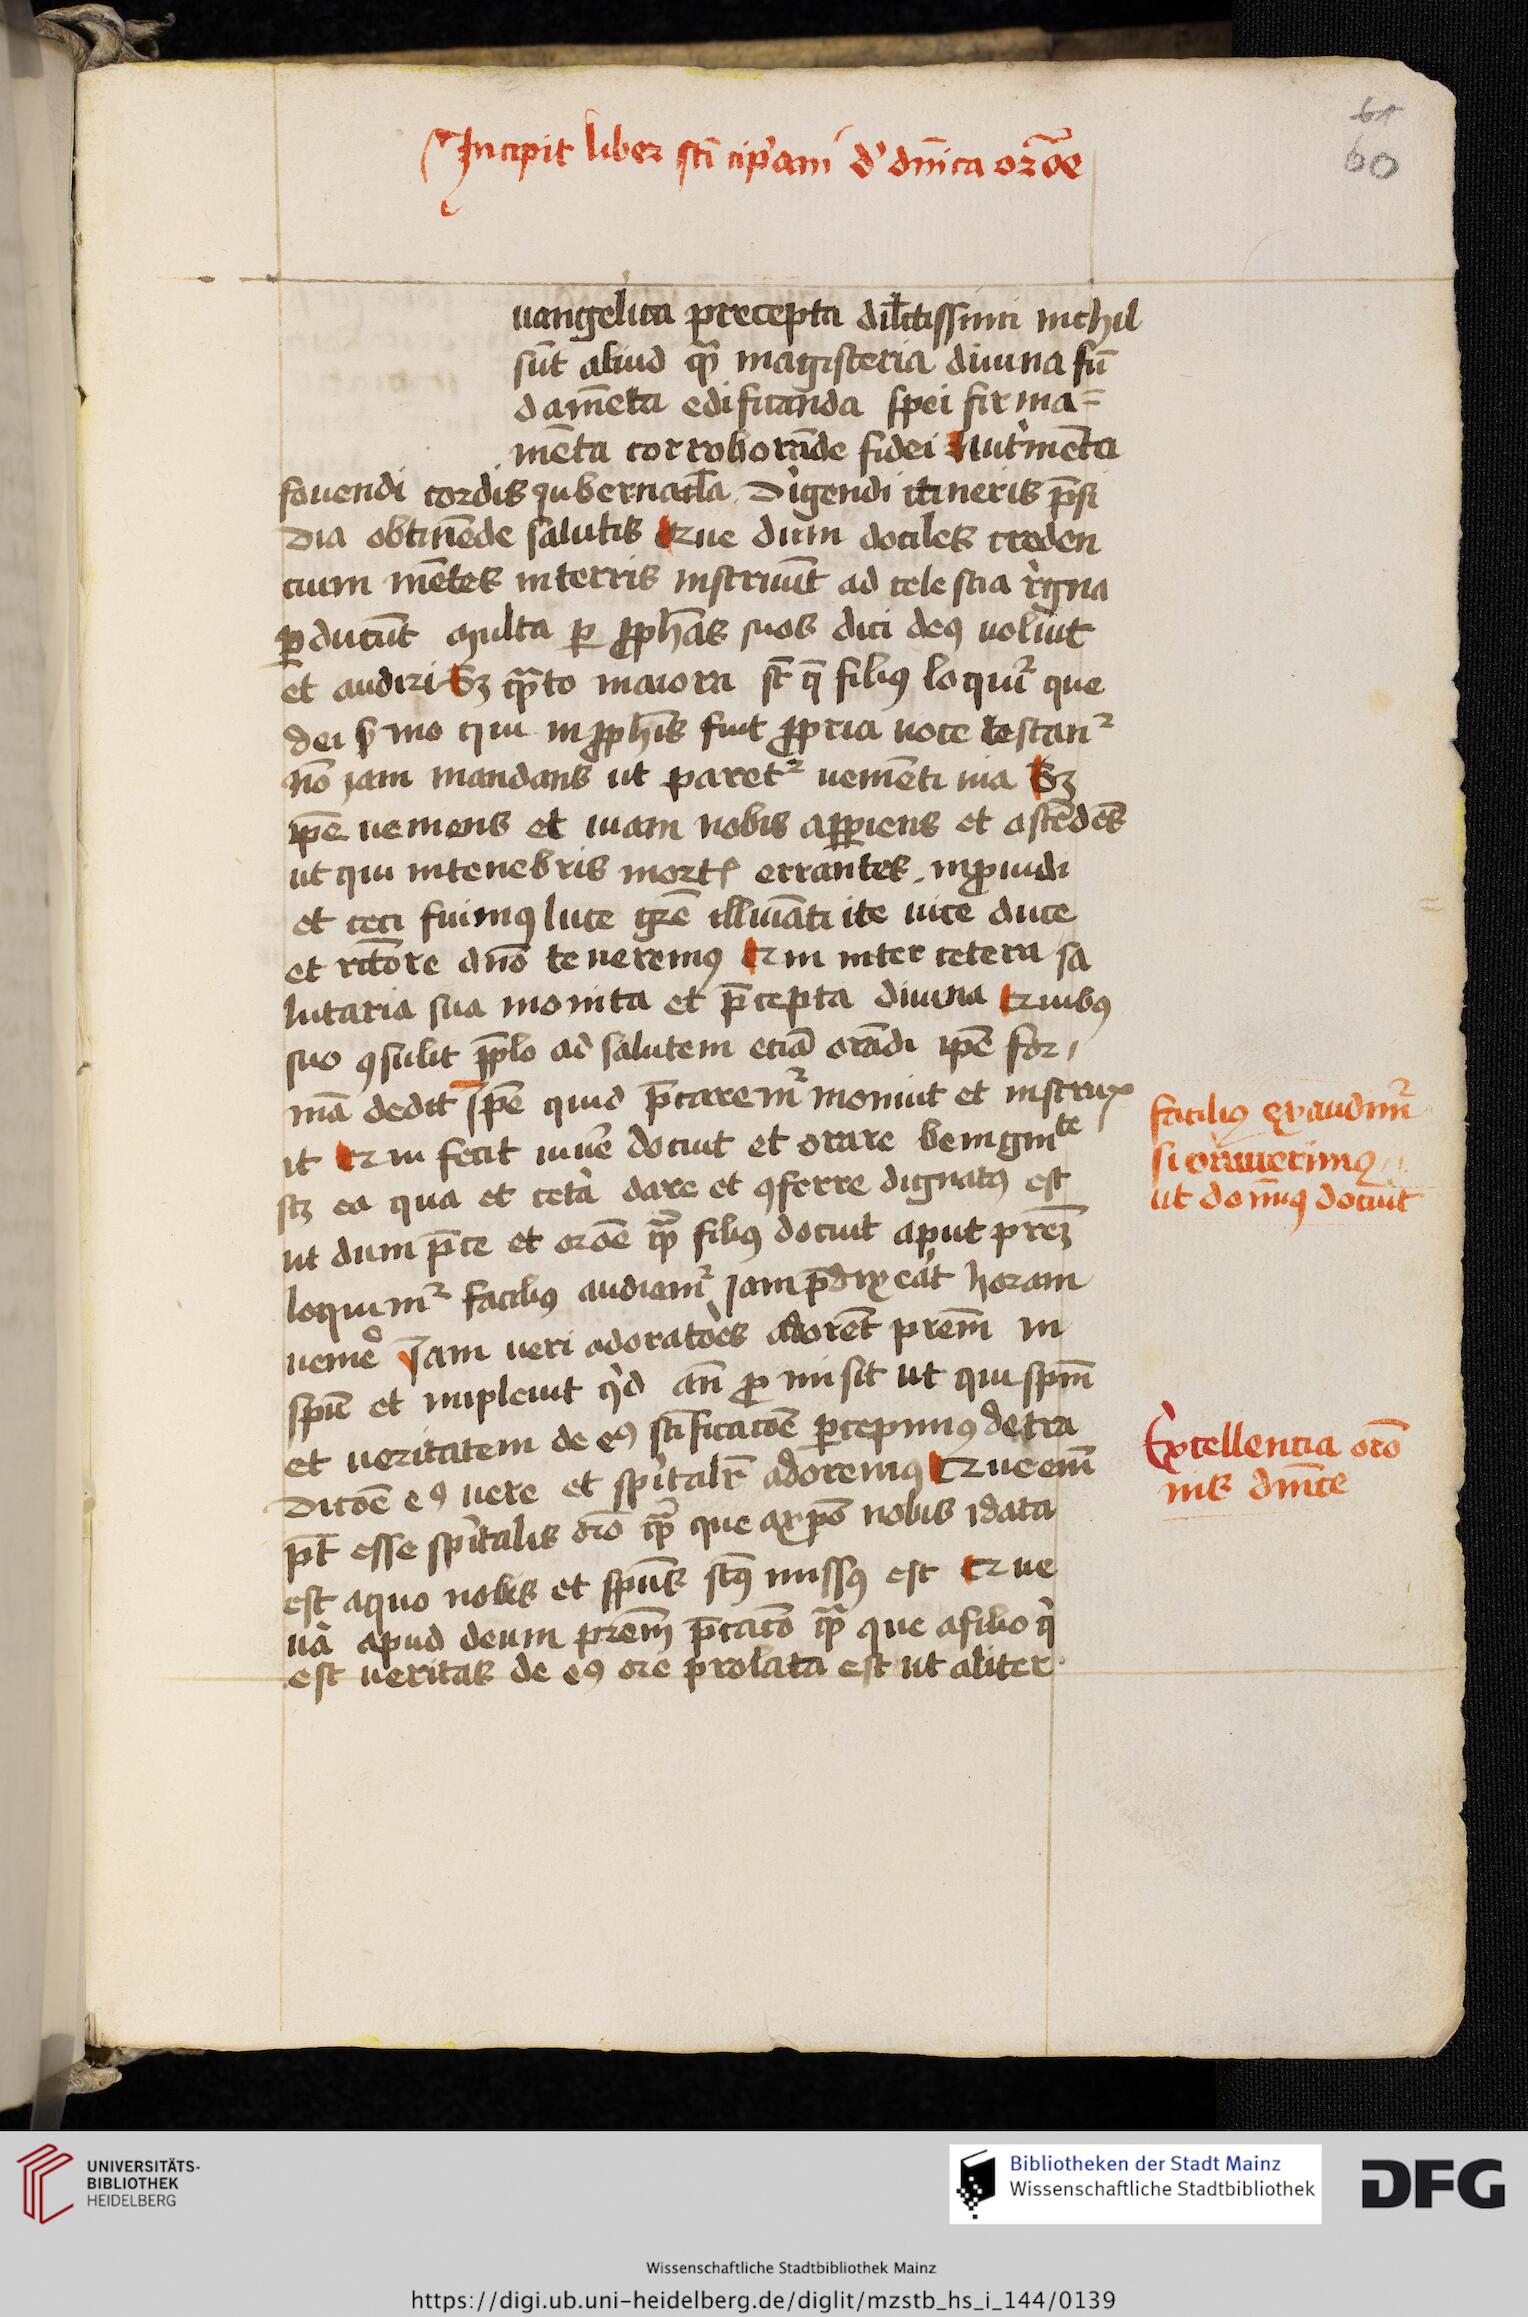 61
60
Incipit liber sc̄i cip̄ani d' dn̄ica or̄oe
uangelica precepta dil̄ctissimi nichil
sūt aliud q̄ȝ magisteria diuina fū
damēta edificanda spei firma=
mēta corroborāde fidei Nut'mēta
fouendi cordis gubernac̄la D'igendi itineris p̄si
dia obtinēde salutis Que dum dociles creden
cium mētes in terris instruūt ad celestia r'gna
ꝑducūt Multa ꝑ ꝓph̄as suos dici deꝰ uoluit
et audiri Sȝ q̄ȝto maiora st̄ q̄ filiꝰ loquit᷑ que
dei s'mo qui in ꝓph̄is fuit ꝓpria uoce testat᷑
nō jam mandans ut paret᷑ ueniēti uia Sȝ
ip̄e ueniens et uiam nobis apꝑiens et ostēdēs
ut qui in tenebris mortꝭ errantes inꝓuidi
et ceci fuimꝰ luce gr̄e illuīati ite' uite duce
et rc̄tore dn̄o teneremꝰ Qui inter cetera sa
lutaria sua monita et p̄cepta diuina Quibꝰ
suo ꝯsulit pp̄lo ad salutem eciā orādi ip̄e for
mā dedit Ip̄e quid p̄carem᷑ monuit et instrux
it Qui fecit uiu'e docuit et orare benigni^te
sȝ ea qua et cet'a dare et ꝯferre dignatꝰ est
ut dum p̄ce et or̄oe q̄ȝ filiꝰ docuit aput pr̄eȝ
loquim᷑ faciliꝰ audiam᷑ Jam p̄dix'at horam
uenire Iam ueri adorato'es adorēt pr̄em in
sp̄u et impleuit q'd an̄ ꝓmisit ut qui sp̄m
et ueritatem de eꝰ sc̄ificatōe ꝑcepimꝰ de tra
dicōe eꝰ vere et sp̄italr̄ adoremꝰ Que em̄
pt̄ esse sp̄italis or̄o q̄ȝ que a xp̄o nobis data
est a quo nobis et sp̄us sc̄ꝰ missꝰ est Que
u'a apud deum pr̄em p̄catō q̄ȝ que a filio q'
est ueritas de eꝰ ore prolata est ut aliter
faciliꝰ exaudim᷑
si orauerimꝰ
ut domīꝰ docuit
Excellencia or̄o
nis dn̄ice
UNIVERSITÄTS-
BIBLIOTHEK
HEIDELBERG
Bibliotheken der Stadt Mainz
Wissenschaftliche Stadtbibliothek
DFG
Wissenschaftliche Stadtbibliothek Mainz
https://digi.ub.uni-heidelberg.de/diglit/mzstb_hs_i_144/0139